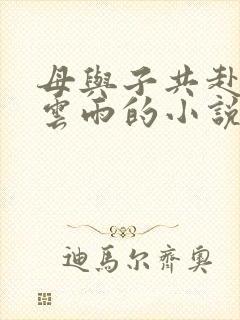 母與子共赴
雲雨的小說
迪馬尔齊奧